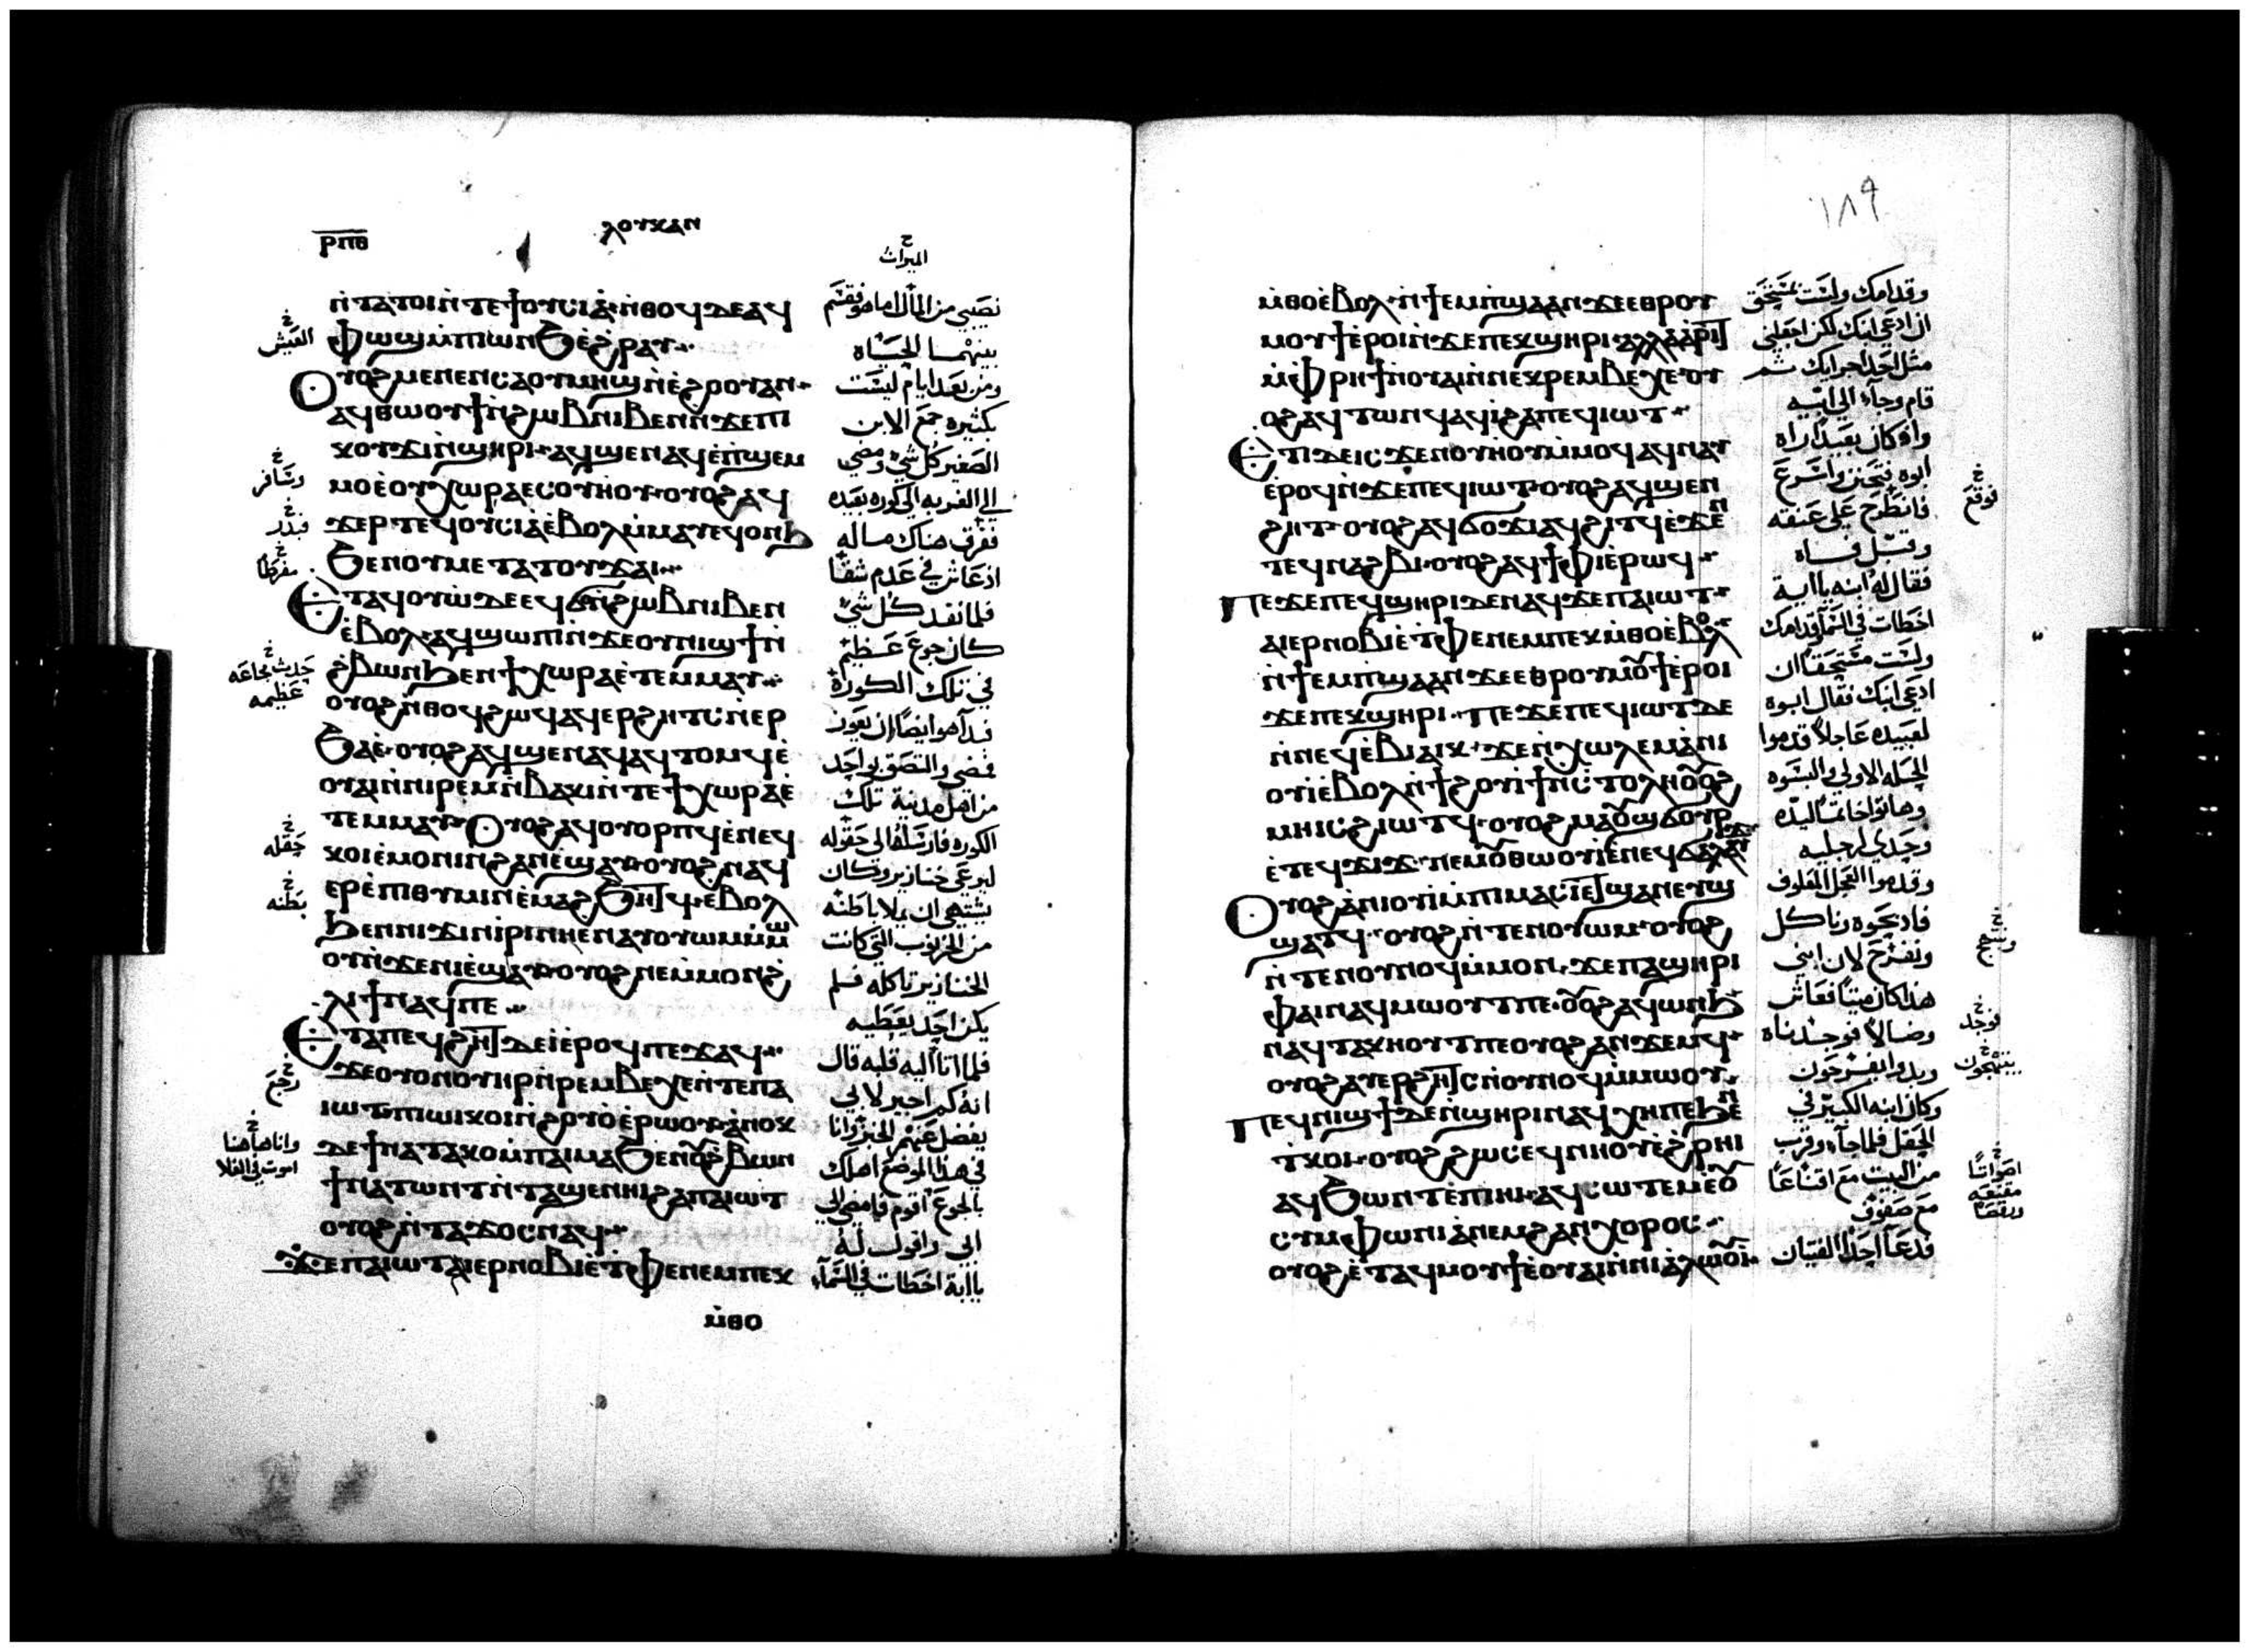 ⲣⲡⲑ
ⲗⲟⲩⲕⲁⲛ
ⲛ̀ⲧⲁⲧⲟⲓⲛ̀ⲧⲉϯⲟⲩⲥⲓⲁ̀·ⲛ̀ⲑⲟϥⲇⲉⲁϥ
ⲫⲱϣⲙ̀ⲡⲓⲱⲛϧⲉ̀ϩⲣⲁⲩ
ⲟⲩⲟϩⲙⲉⲛⲉⲛⲥⲁⲟⲩⲙⲏϣⲛ̀ⲉ̀ϩⲟⲟⲩⲁⲛ
ⲁϥⲑⲱⲟⲩϯⲛ̀ϩⲱⲃⲛⲓⲃⲉⲛⲛ̀ϫⲉⲡⲓ
ⲕⲟⲩϫⲓⲛ̀ϣⲏⲣⲓ·ⲁϥϣⲉⲛⲁϥⲉ̀ⲡϣⲉⲙ
ⲙⲟⲉ̀ⲟⲩⲭⲱⲣⲁⲉⲥⲟⲩⲏⲟⲩ·ⲟⲩⲟϩⲁϥ
ϫⲉⲣ·ⲧⲉϥⲟⲩⲥⲓⲁⲉ̀ⲃⲟⲗⲙ̀ⲙⲁⲩⲉϥⲟⲛϧ
ϧⲉⲛⲟⲩⲙⲉⲧⲁⲧⲟⲩϫⲁⲓ
ⲉⲧⲁϥⲟⲩⲱ̀ⲇⲉⲉϥϭⲛ̀ϩⲱⲃⲛⲓⲃⲉⲛ
ⲉ̀ⲃⲟⲗ·ⲁϥϣⲱⲡⲓⲛ̀ϫⲉⲟⲩⲛⲓϣϯⲛ̀
ϩ̀ⲃⲱⲛϧⲉⲛϯⲭⲱⲣⲁⲉ̀ⲧⲉⲙⲙⲁⲩ
ⲟⲩⲟϩⲛ̀ⲑⲟϥϩⲱϥⲁϥⲉⲣϩⲏⲧⲥⲛ̀ⲉⲣ
ϧⲁⲉ̀·ⲟⲩⲟϩⲁϥϣⲉⲛⲁϥⲁϥⲧⲟⲙϥⲉ̀
ⲟⲩⲁⲓⲛ̀ⲛⲓⲣⲉⲙⲛ̀ⲃⲁⲕⲓⲛ̀ⲧⲉϯⲭⲱⲣⲁⲉ̀
ⲧⲉⲙⲙⲁⲩ·ⲟⲩⲟϩⲁϥⲟⲩⲟⲣⲡϥⲉ̀ⲛⲉϥ
ⲕⲟⲓⲉ̀ⲙⲟⲛⲓⲛ̀ϩⲁⲛⲉ̀ϣⲁⲩ·ⲟⲩⲟϩⲛⲁϥ
ⲉⲣⲉ̀ⲡⲓⲑⲩⲙⲓⲛⲉ̀ⲙⲁϩϧⲏⲧϥ·ⲉ̀ⲃⲟⲗ
ϧⲉⲛⲛⲓϫⲓⲛⲓ̀ⲣⲓⲛⲏⲉⲛⲁⲩⲟⲩⲱⲙⲙ̀ⲙⲱ
ⲟⲩⲛ̀ϫⲉⲛⲓⲉ̀ϣⲁⲩ·ⲟⲩⲟϩⲛⲉⲙ̀ⲙⲟⲛϩ̀
ⲗⲓϯⲛⲁϥⲡⲉ
ⲉⲧⲁⲡⲉϥϩⲏⲧⲇⲉⲓ̀ⲉ̀ⲣⲟϥⲡⲉϫⲁϥ
ϫⲉⲟⲩⲟⲛⲟⲩⲏⲣⲛ̀ⲣⲉⲙⲃⲉⲭⲉⲛ̀ⲧⲉⲡⲁ
ⲓⲱⲧ·ⲡⲓⲱⲓⲕⲟⲓⲛ̀ϩⲟⲩⲟ̀ⲉ̀ⲣⲱⲟⲩ·ⲁ̀ⲛⲟⲕ
ⲇⲉϯⲛⲁⲧⲁⲕⲟⲙ̀ⲡⲁⲓⲙⲁϧⲉⲛⲟⲩϩ̀ⲃⲱⲛ
ϯⲛⲁⲧⲱⲛⲧⲛ̀ⲧⲁϣⲉⲛⲏⲓϩⲁⲡⲁⲓⲱⲧ
ⲟⲩⲟϩⲛ̀ⲧⲁϫⲟⲥⲛⲁϥ
ϫⲉⲡⲁⲓⲱⲧⲁⲓⲉⲣⲛⲟⲃⲓⲉ̀ⲧⲫⲉⲛⲉⲙⲡⲉⲕ
ⲙ̀ⲑⲟ
الميراث
نصيبي من المال اما هو فقسم
بينهما الحياه
ومن بعد ايام ليست
بكثيره جمع الابن
الصغير كل شي ومضي
الي الغربه الي كوره بعيده
ففرق هناك ماله
اذ عاش في عدم شفا
فلما نفد كل شي
كان جوع عظيم
في تلك الكورة
فبدا هو ايضا ان يعوز
فمضي والتصق بواحد
من اهل مدينة تلك
الكوره فارسله الي حقوله
ليرعي خنازير وكان
يشتهي ان يملا باطنه
من الخرنوب التي كانت
الخنازير تاكله فلم
يكن احد يعطيه
فلما اتا اليه قلبه قال
انه كم اجير لابي
يفضل عنهم الخبز وانا
في هذا الموضع اهلك
بالجوع اقوم وامضي الي
ابي واقول له
يا ابة اخطات في السما
العيش
وسافر
فبدد
مفرطا
حدثت مجاعه
عظيمه
حقله
بطنه
رجع
وانا هاهنا
١٨٩
ⲙ̀ⲑⲟⲉ̀ⲃⲟⲗ·ⲛ̀ϯⲉⲙⲡ̀ϣⲁⲁⲛ·ϫⲉⲉⲑⲣⲟⲩ
ⲙⲟⲩϯⲉ̀ⲣⲟⲓⲛ̀ϫⲉⲡⲉⲕϣⲏⲣⲓ·ⲁⲗⲗⲁⲁ̀ⲣⲓⲧ
ⲙ̀ⲫⲣⲏϯⲛⲟⲩⲁⲓⲛ̀ⲛⲉⲕⲣⲉⲙⲃⲉⲭⲉ·ⲟⲩ
ⲟϩⲁϥⲧⲱⲛϥⲁϥⲓ̀ϩⲁⲡⲉϥⲓⲱⲧ
ⲉⲧⲓⲇⲉⲓⲥϫⲉⲛⲟⲩⲏⲟⲩⲙ̀ⲙⲟϥⲁϥⲛⲁⲩ
ⲉ̀ⲣⲟϥⲛ̀ϫⲉⲡⲉϥⲓⲱⲧ·ⲟⲩⲟϩⲁϥϣⲉⲛ
ϩⲏⲧ·ⲟⲩⲟϩⲁϥϭⲟϫⲓⲁϥϩⲓⲧϥⲉ̀ϫⲉⲛ
ⲧⲉϥⲛⲁϩⲃⲓ·ⲟⲩⲟϩⲁϥϯⲫⲓⲉ̀ⲣⲱϥ
ⲡⲉϫⲉⲡⲉϥϣⲏⲣⲓⲇⲉⲛⲁϥϫⲉⲡⲁⲓⲱⲧ
ⲁⲓⲉⲣⲛⲟⲃⲓⲉ̀ⲧⲫⲉⲛⲉⲙⲡⲉⲕⲙ̀ⲑⲟⲉ̀ⲃⲟⲗ
ⲛ̀ϯⲉⲙⲡ̀ϣⲁⲁⲛϫⲉⲉⲑⲣⲟⲩⲙⲟϯⲉ̀ⲣⲟⲓ
ϫⲉⲡⲉⲕϣⲏⲣⲓ·ⲡⲉϫⲉⲡⲉϥⲓⲱⲧⲇⲉ
ⲛ̀ⲛⲉϥⲉ̀ⲃⲓⲁⲓⲕ·ϫⲉⲛ̀ⲭⲱⲗⲉⲙⲁ̀ⲛⲓ
ⲟⲩⲓⲉ̀ⲃⲟⲗⲛ̀ϯϩⲟⲩⲓ̀ϯⲛⲥ̀ⲧⲟⲗⲏⲟⲟϩ
ⲙⲏⲓⲥϩⲓⲱⲧϥ·ⲟⲩⲟϩⲙⲁⲟϣϭⲟⲩⲣ
ⲉ̀ⲧⲉϥϫⲓϫ·ⲛⲉⲙⲟⲑⲱⲟⲩⲓ̀ⲉ̀ⲛⲉϥϭⲁⲗⲁⲩϫ
ⲟⲩⲟϩⲁ̀ⲛⲓⲟⲩⲓⲙ̀ⲡⲓⲙⲁⲥⲓⲉⲧϣⲁⲛⲉⲩϣ
ϣⲁⲧϥ·ⲟⲩⲟϩⲛ̀ⲧⲉⲛⲟⲩⲱⲙ·ⲟⲩⲟϩ
ⲛ̀ⲧⲉⲛⲟⲩⲛⲟϥⲙ̀ⲙⲟⲛ·ϫⲉⲡⲁϣⲏⲣⲓ
ⲫⲁⲓⲛⲁϥⲙⲱⲟⲩⲧⲡⲉ·ⲟⲟϩⲁϥⲱⲛϧ
ⲛⲁϥⲧⲁⲕⲏⲟⲩⲧⲡⲉⲟⲩⲟϩⲁⲛϫⲉⲙϥ
ⲟⲩⲟϩⲁⲩⲉⲣϩⲏⲧⲥⲛ̀ⲟⲩⲛⲟϥⲙ̀ⲙⲱⲟⲩ
ⲡⲉϥⲛⲓϣϯⲇⲉⲛ̀ϣⲏⲣⲓⲛⲁϥⲭⲏⲡⲉϧⲉⲛ
ⲧⲕⲟⲓ·ⲟⲩⲟϩϩⲱⲥⲉϥⲛⲏⲟⲩⲉ̀ϩⲣⲏⲓ
ⲁϥϧⲱⲛⲧⲉ̀ⲡⲓⲏⲓ·ⲁϥⲥⲱⲧⲉⲙⲉⲟ
ⲥⲩⲙⲫⲱⲛⲓⲁ̀ⲛⲉⲙϩⲁⲛⲭⲟⲣⲟⲥ
ⲟⲩⲟϩⲉ̀ⲧⲁϥⲙⲟⲩϯⲉ̀ⲟⲩⲁⲓⲛ̀ⲛⲓⲁ̀ⲗⲱⲟⲩⲓ
وقدامك ولست بمستحق
ان ادعي ابنك لكن اجعلني
مثل احد اجرايك ثم
قام وجاء الي ابيه
واذ كان بعيدا راه
ابوه فتحنن واسرع
فانطرح علي عنقه
وقبل فاه
فقال له ابنه يا ابة
اخطات في السما وقدامك
ولست مستحقا ان
ادعي ابنك فقال ابوه
لعبيده عاجلا قدموا
الحله الاولي والبسوه
وهاتوا خاتما ليده
وحذي لرجليه
وقدموا العجل المعلوف
فاذبحوه وناكل
ونفرح لان ابني
هذا كان ميتا فعاش
وضالا فوجدناه
وبدوا يفرحون
وكان ابنه الكبير في
الحقل فلما جاء وقرب
من البيت سمع اقناعا
مع صفوف
فدعا احد الفتيان
فوقع
فوجد
يبتهجون
اصواتا